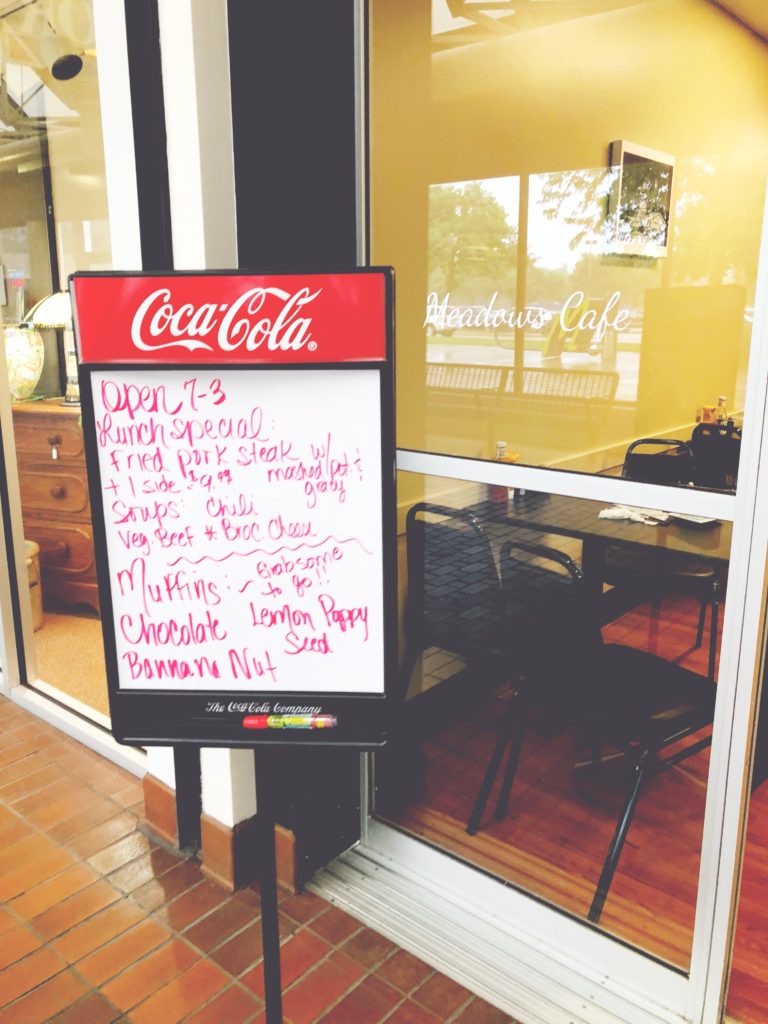 Coca-Cola®
Open 7-3
Lunch special:
Fried pork steak w/
mashed pot. &
gravy
+ 1 side $9.99
Soups: Chili
Veg. Beef * Broc Cheese
Muffins: ~ Grab some
to go!!
Chocolate Lemon Poppy
Seed
Bannana Nut
The Coca-Cola Company
Meadows Cafe